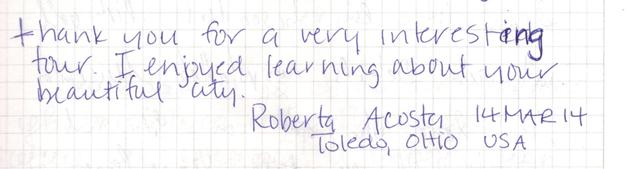 thank you for a very interesting
tour. I enjoyed learning about your
beautiful city.
Roberta Acosta 14 MAR 14
Toledo, OHIO USA